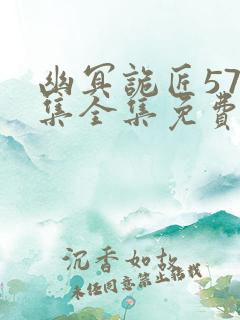 幽冥詭匠57
集全集免費
沉香如故
未经同意禁止搭载